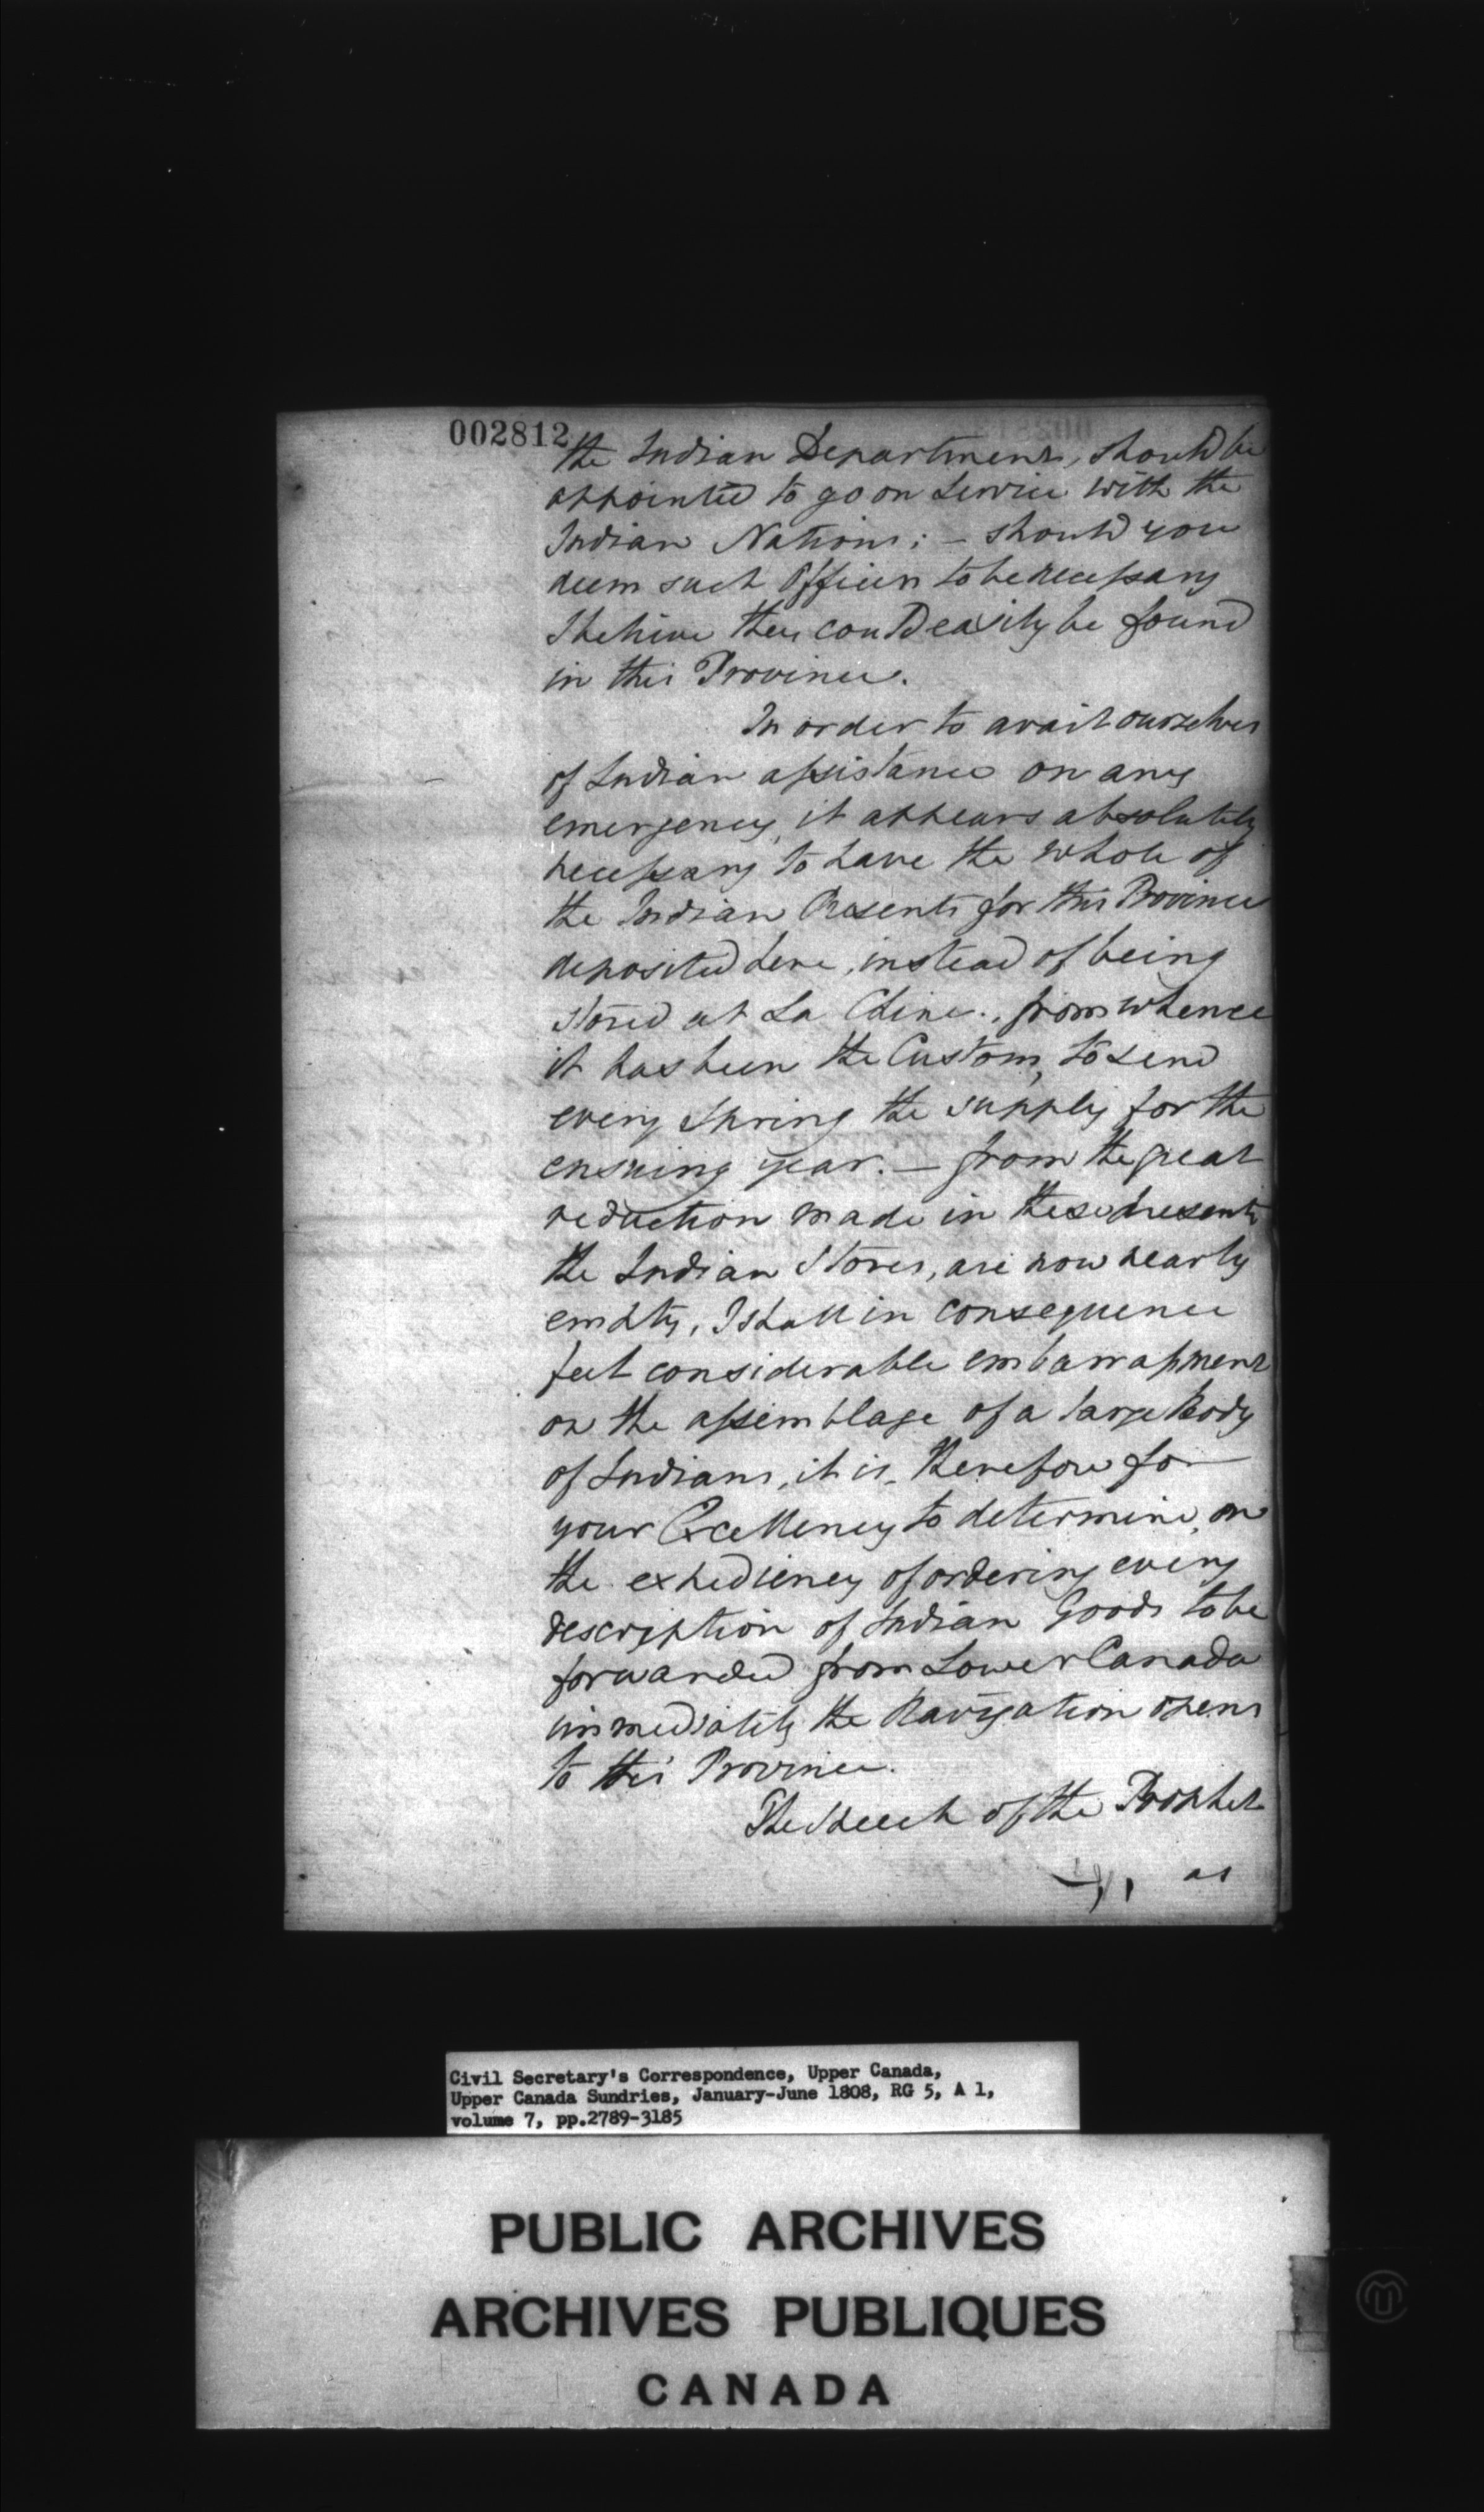 002812
the Indian Department, should be
appointed to go on Service with the
Indian Nations; – should you
deem such Officers to be necessary
I believe they could easily be found
in this Province.
In order to avail ourselves
of Indian assistance on any
emergency, it appears absolutely
necessary to have the whole of
the Indian Presents for this Province
deposited here, instead of being
stored at La Chine, from whence
it has been the Custom, to send
every Spring the supply for the
ensuing year. – from the great
reduction made in these presents
the Indian Stores, are now nearly
empty, I shall in consequence
feel considerable embarrassment
on the assemblage of a large Body
of Indians, it is, therefore for
your Excellency to determine, on
the expediency of ordering every
description of Indian Goods to be
forwarded from Lower Canada
immediately the Navigation opens
to this Province.
The Speech of the Prophet
as
Civil Secretary's Correspondence, Upper Canada,
Upper Canada Sundries, January-June 1808, RG 5, A 1,
volume 7, pp.2789-3185
PUBLIC ARCHIVES
ARCHIVES PUBLIQUES
CANADA